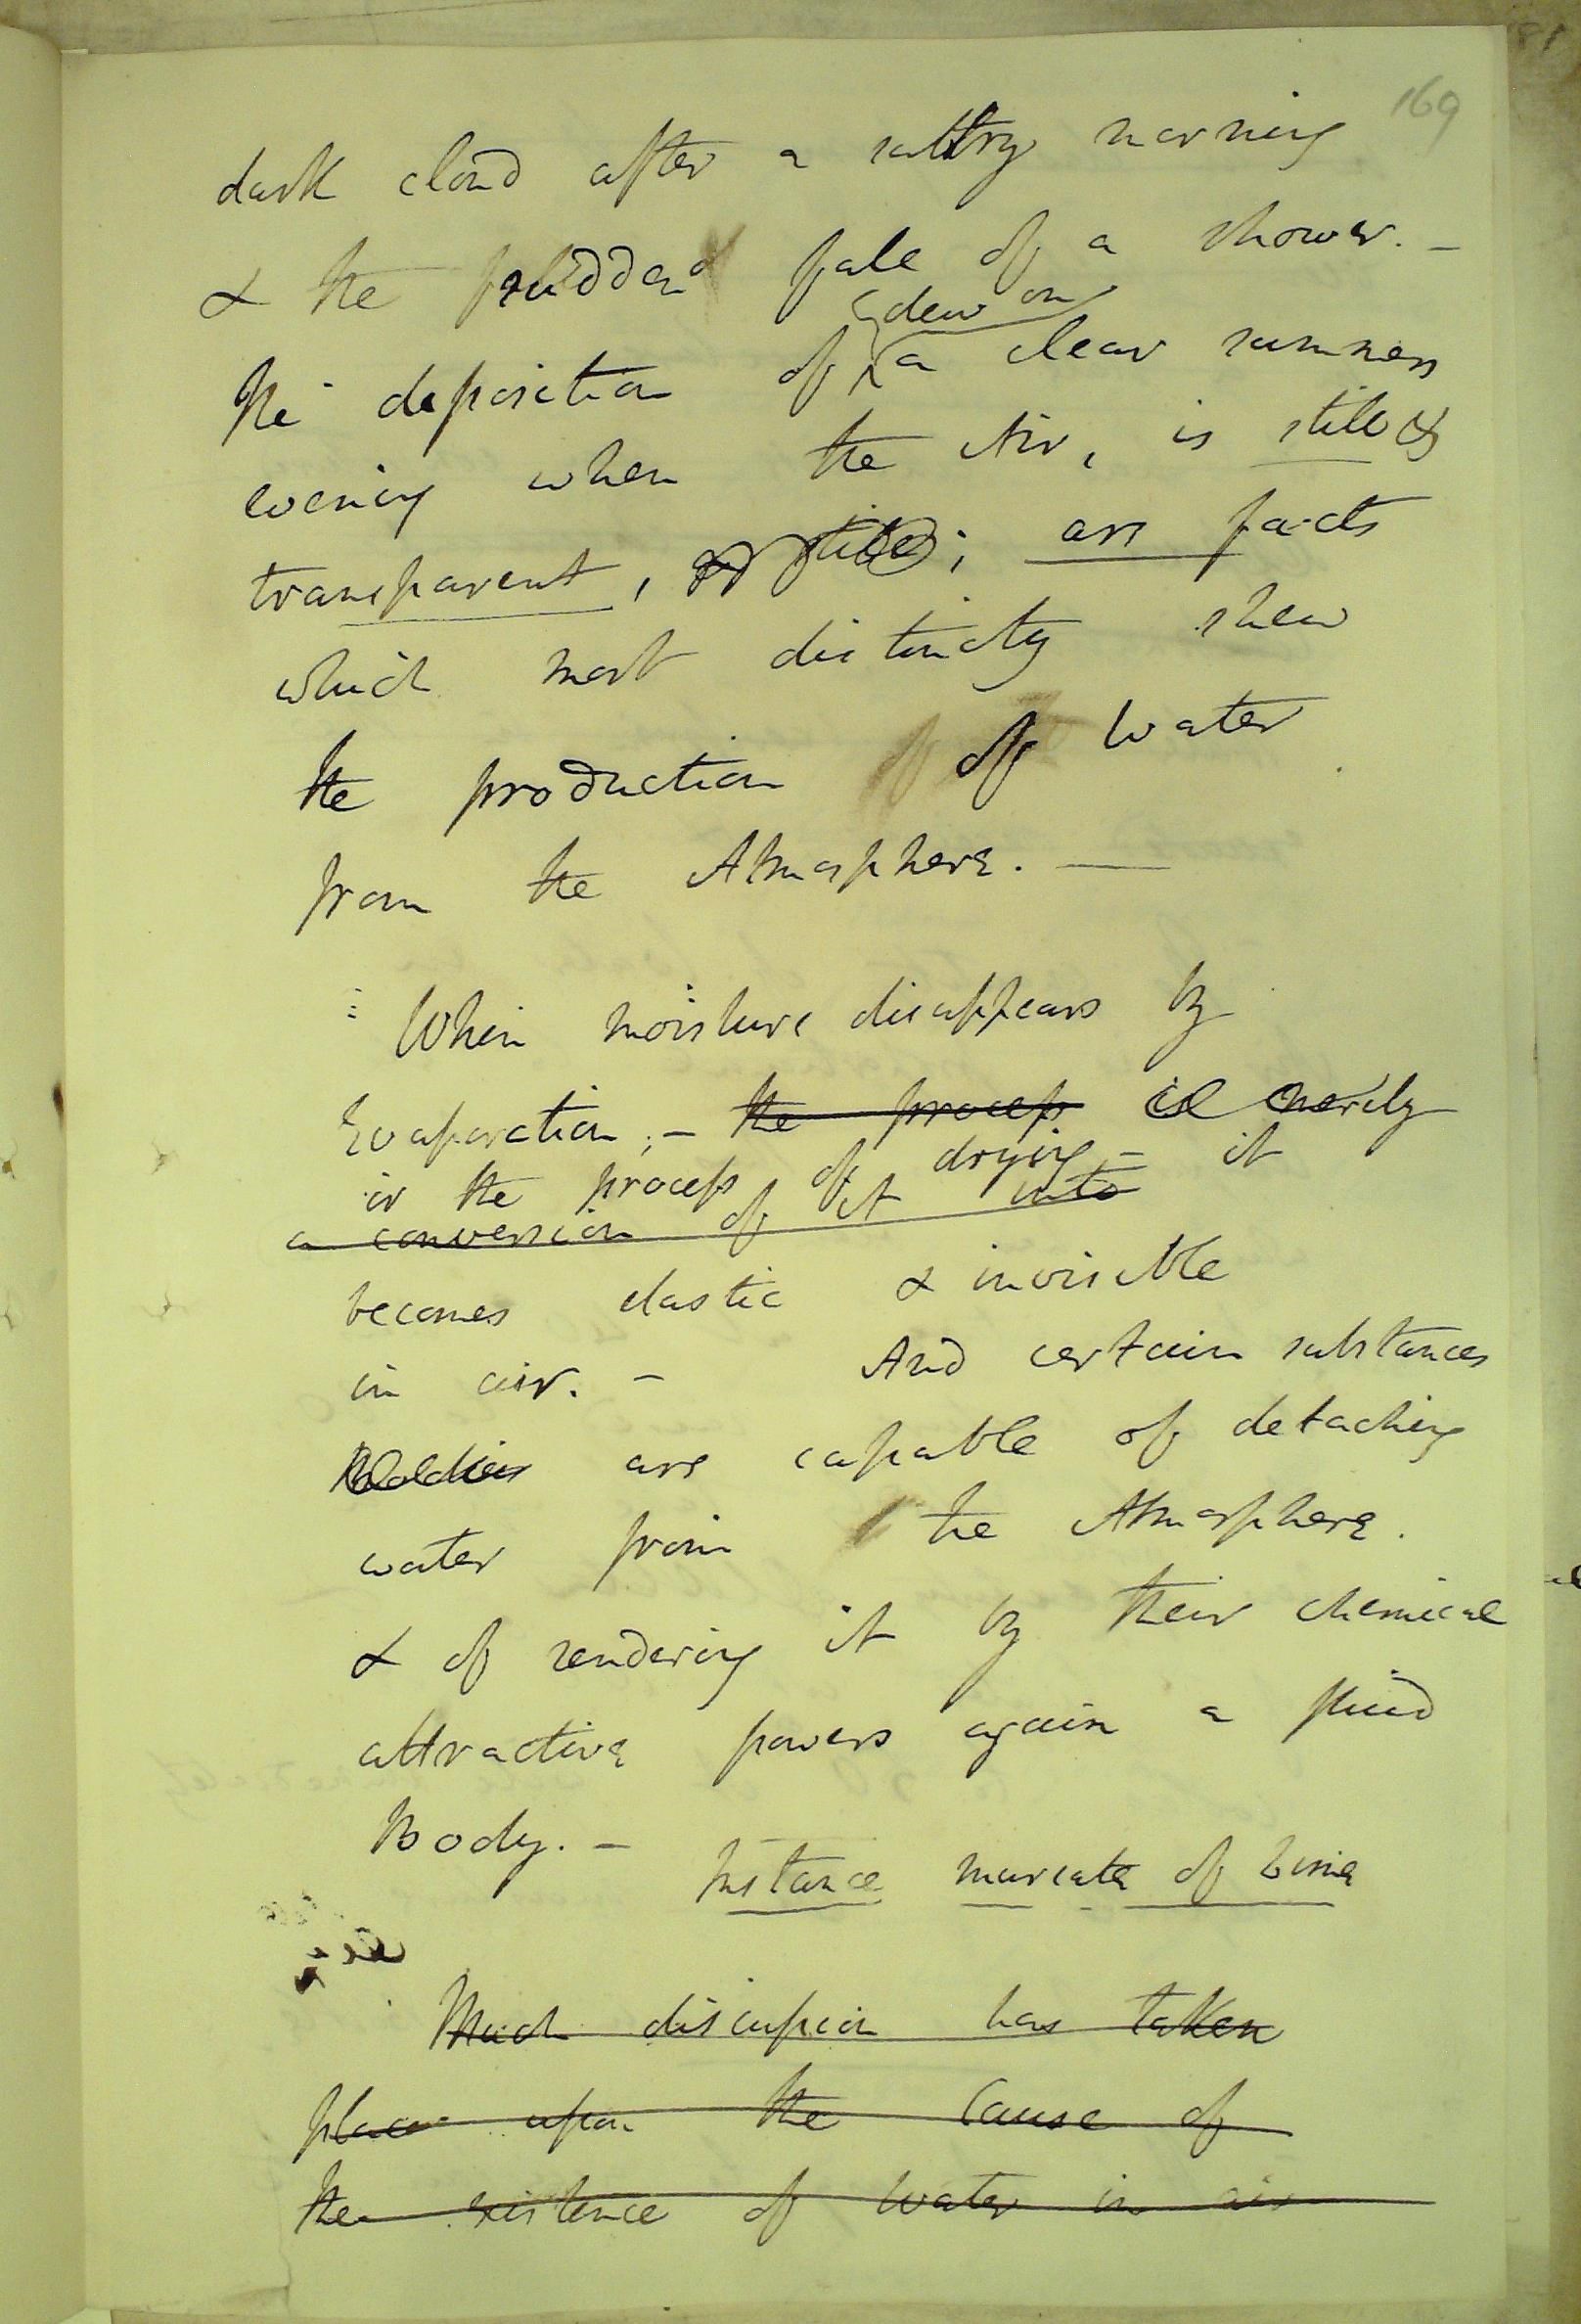 169
dark cloud after a sultry morning
& the sudden fale of a shower. –
dew on
the deposition of a clear summers
evening when the Air, is still &
transparent, & still; are facts
which most distinctly shew
the production of of water
from the Atmosphere. —
When moisture disappears by
Evaporation; – the process is merely
in the process of drying – it
a conversion of it into
becomes elastic & invisible
in air. – And certain substances
Bodies are capable of detaching
water from the Atmosphere.
& of rendering it by their chemical
attractive powers again a fluid
Body. –
Instance muriate of Lime
Much discussion has taken
place upon the Cause of
the existence of Water in air